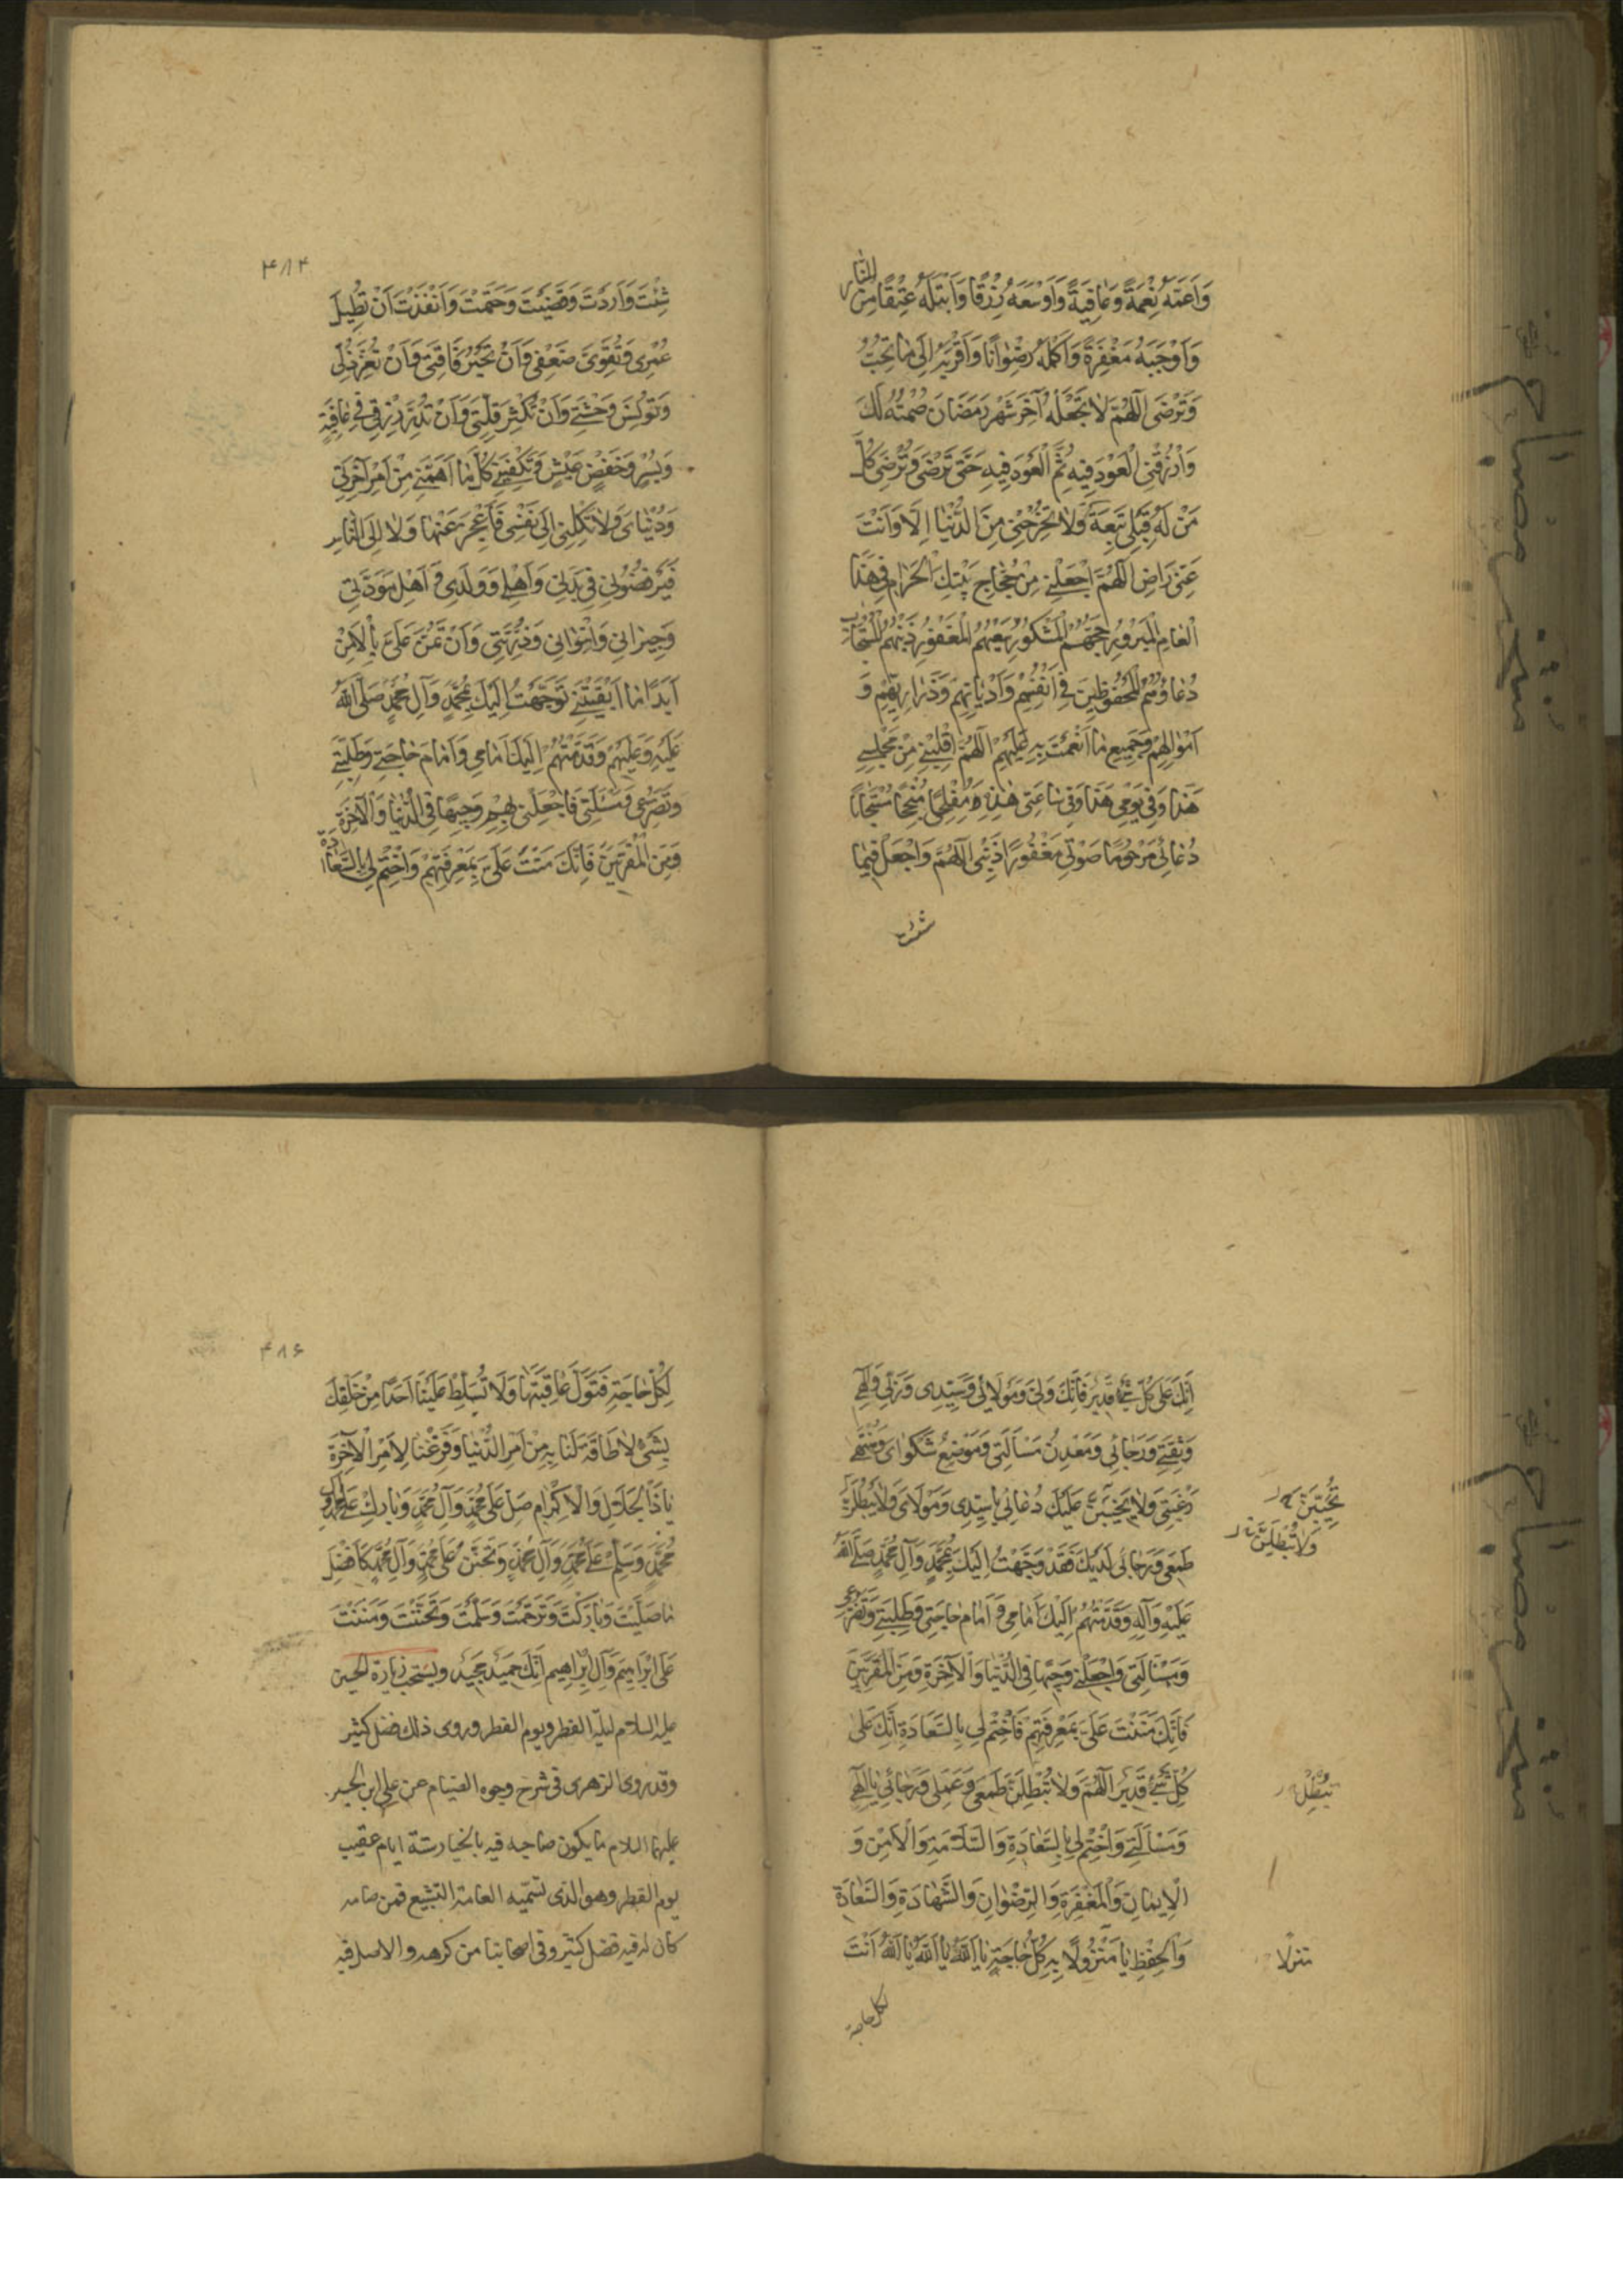 وَاَعَمَّهُ نِعْمَةً وَعَافِيَةً وَاَوْسَعَهُ رِزْقًا وَاَبْتَلَهُ عِتْقًا مِنَ النَّارِ
وَاَوْجَبَهُ مَغْفِرَةً وَاَكْمَلَهُ رِضْوَانًا وَاَقْرَبَهُ اِلَى مَا تُحِبُّ
وَتَرْضَى اَللّٰهُمَّ لَا تَجْعَلْهُ آخِرَ شَهْرِ رَمَضَانَ صُمْتُهُ لَكَ
وَارْزُقْنِى الْعَوْدَ فِيهِ ثُمَّ الْعَوْدَ فِيهِ حَتَّى تَرْضَى وَتُرْضِىَ كُلَّ
مَنْ لَهُ قِبَلِى تَبِعَةٌ وَلَا تُخْرِجْنِى مِنَ الدُّنْيَا اِلَّا وَاَنْتَ
عَنِّى رَاضٍ اَللّٰهُمَّ اجْعَلْنِى مِنْ حُجَّاجِ بَيْتِكَ الْحَرَامِ فِى هَذَا
الْعَامِ الْمَبْرُورِ حَجُّهُمُ الْمَشْكُورِ سَعْيُهُمُ الْمَغْفُورِ ذَنْبُهُمُ الْمُسْتَجَابِ
دُعَاؤُهُمُ الْمَحْفُوظِينَ فِى اَنْفُسِهِمْ وَاَدْيَانِهِمْ وَذَرَارِيهِمْ وَ
اَمْوَالِهِمْ وَجَمِيعِ مَا اَنْعَمْتَ بِهِ عَلَيْهِمْ اَللّٰهُمَّ اقْلِبْنِى مِنْ مَجْلِسِى
هَذَا وَفِى يَوْمِى هَذَا وَفِى سَاعَتِى هَذِهِ مُفْلِحًا مُنْجِحًا مُسْتَجَابًا
دُعَائِى مَرْحُومًا صَوْتِى مَغْفُورًا ذَنْبِى اَللّٰهُمَّ وَاجْعَلْ فِيمَا
شئت
۴۸۴
شِئْتَ وَاَرَدْتَ وَقَضَيْتَ وَحَتَمْتَ وَاَنْفَذْتَ اَنْ تُطِيلَ
عُمْرِى وَتُقَوِّىَ ضَعْفِى وَاَنْ تَجْبُرَ فَاقَتِى وَاَنْ تُعِزَّ ذُلِّى
وَتُونِسَ وَحْشَتِى وَاَنْ تُكْثِرَ قِلَّتِى وَاَنْ تُدِرَّ رِزْقِى فِى عَافِيَةٍ
وَيُسْرٍ وَخَفْضِ عَيْشٍ وَتَكْفِيَنِى كُلَّ مَا اَهَمَّنِى مِنْ اَمْرِ آخِرَتِى
وَدُنْيَاىَ وَلَا تَكِلْنِى اِلَى نَفْسِى فَاَعْجِزَ عَنْهَا وَلَا اِلَى النَّاسِ
فَيَرْفُضُونِى فِى بَدَنِى وَاَهْلِى وَوَلَدِى وَ اَهْلِ مَوَدَّتِى
وَجِيرَانِى وَاِخْوَانِى وَذُرِّيَّتِى وَاَنْ تَمُنَّ عَلَىَّ بِالْاَمْنِ
اَبَدًا مَا اَبْقَيْتَنِى تَوَجَّهْتُ اِلَيْكَ بِمُحَمَّدٍ وَآلِ مُحَمَّدٍ صَلَّى اللهُ
عَلَيْهِ وَعَلَيْهِمْ وَقَدَّمْتُهُمْ اِلَيْكَ اَمَامِى وَاَمَامَ حَاجَتِى وَطَلِبَتِى
وَتَضَرُّعِى وَمَسْئَلَتِى فَاجْعَلْنِى بِهِمْ وَجِيهًا فِى الدُّنْيَا وَالْآخِرَةِ
وَمِنَ الْمُقَرَّبِينَ فَاِنَّكَ مَنَنْتَ عَلَىَّ بِمَعْرِفَتِهِمْ وَاخْتِمْ لِى بِالسَّعَادَةِ
اِنَّكَ عَلَى كُلِّ شَىْءٍ قَدِيرٌ فَاِنَّكَ وَلِيِّى وَمَوْلَائِى وَسَيِّدِى وَرَبِّى وَاِلٰهِى
وَثِقَتِى وَرَجَائِى وَمَعْدِنُ مَسْاَلَتِى وَمَوْضِعُ شَكْوَاىَ وَمُنْتَهَى
رَغْبَتِى وَلَا يَخِيبَنَّ عَلَيْكَ دُعَائِى يَا سَيِّدِى وَمَوْلَاىَ وَلَا يَبْطُلَنَّ
تُخَيِّبَنَّ
وَلَا تُبْطِلَنَّ
طَمَعِى وَرَجَائِى لَدَيْكَ فَقَدْ تَوَجَّهْتُ اِلَيْكَ بِمُحَمَّدٍ وَآلِ مُحَمَّدٍ صَلَّى اللهُ
عَلَيْهِ وَآلِهِ وَقَدَّمْتُهُمْ اِلَيْكَ اَمَامِى وَ اَمَامَ حَاجَتِى وَطَلِبَتِى وَتَضَرُّعِى
وَمَسْاَلَتِى وَاجْعَلْنِى وَجِيهًا فِى الدُّنْيَا وَالْآخِرَةِ وَمِنَ الْمُقَرَّبِينَ
فَاِنَّكَ مَنَنْتَ عَلَىَّ بِمَعْرِفَتِهِمْ فَاخْتِمْ لِى بِالسَّعَادَةِ اِنَّكَ عَلَى
كُلِّ شَىْءٍ قَدِيرٌ اَللّٰهُمَّ وَلَا تُبْطِلَنَّ طَمَعِى وَعَمَلِى وَرَجَائِى يَا اِلٰهِى
تُبْطِلْ
وَمَسْاَلَتِى وَاخْتِمْ لِى بِالسَّعَادَةِ وَالسَّلَامَةِ وَالْاَمْنِ وَ
الْاِيمَانِ وَالْمَغْفِرَةِ وَالرِّضْوَانِ وَالشَّهَادَةِ وَالسَّعَادَةِ
وَالْحِفْظِ يَا مَنْزُولًا بِهِ كُلُّ حَاجَةٍ يَا اَللهُ يَا اَللهُ يَا اَللهُ اَنْتَ
لكل حاجة
۴۸۶
لِكُلِّ حَاجَةٍ فَتَوَلَّ عَاقِبَتَهَا وَلَا تُسَلِّطْ عَلَيْنَا اَحَدًا مِنْ خَلْقِكَ
بِشَىْءٍ لَا طَاقَةَ لَنَا بِهِ مِنْ اَمْرِ الدُّنْيَا وَفَرِّغْنَا لِاَمْرِ الْآخِرَةِ
يَا ذَا الْجَلَالِ وَالْاِكْرَامِ صَلِّ عَلَى مُحَمَّدٍ وَآلِ مُحَمَّدٍ وَبَارِكْ عَلَى مُحَمَّدٍ وَآلِ
مُحَمَّدٍ وَسَلِّمْ عَلَى مُحَمَّدٍ وَآلِ مُحَمَّدٍ وَتَحَنَّنْ عَلَى مُحَمَّدٍ وَآلِ مُحَمَّدٍ كَاَفْضَلِ
مَا صَلَّيْتَ وَبَارَكْتَ وَتَرَحَّمْتَ وَسَلَّمْتَ وَتَحَنَّنْتَ وَمَنَنْتَ
عَلَى اِبْرَاهِيمَ وَآلِ اِبْرَاهِيمَ اِنَّكَ حَمِيدٌ مَجِيدٌ ويستحب زيارة الحسين
عليه السلام ليلة الفطر ويوم الفطر وروى ذلك فضل كثير
وقد روى الزهرى فى شرح وجوه الصيام عن على ابن الحسين
عليهما السلام ما يكون صاحبه فيه بالخيار ستة ايام عقيب
يوم الفطر وهو الذى تسميه العامة التشييع فمن صامه
كان له فيه فضل كثير وفى اصحابنا من كرهه والاصل فيه